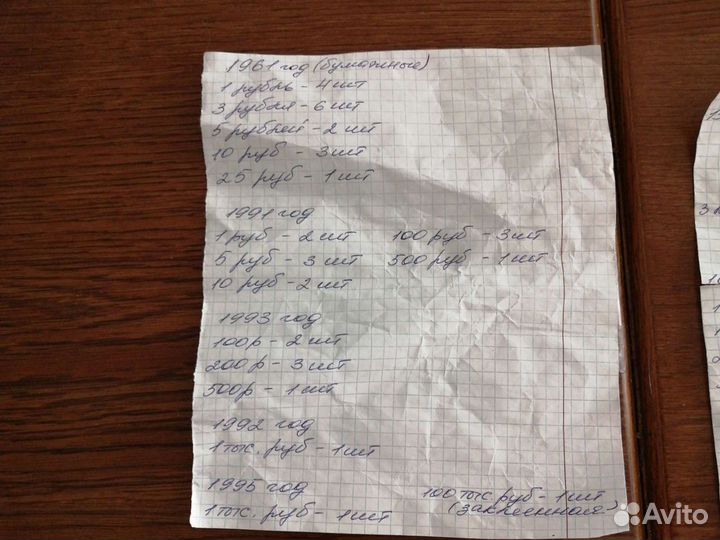 1961 год (бумажные)
1 рубль - 4 шт
3 рубля - 6 шт
5 рублей - 2 шт
10 руб - 3 шт
25 руб - 1 шт
1991 год
1 руб - 2 шт 100 руб - 3 шт
5 руб - 3 шт 500 руб - 1 шт
10 руб - 2 шт
1993 год
100 р - 2 шт
200 р - 3 шт
500 р - 1 шт
1992 год
1 тыс. руб - 1 шт
1995 год 100 тыс руб - 1 шт
1 тыс. руб - 1 шт (заклеенная)
Avito